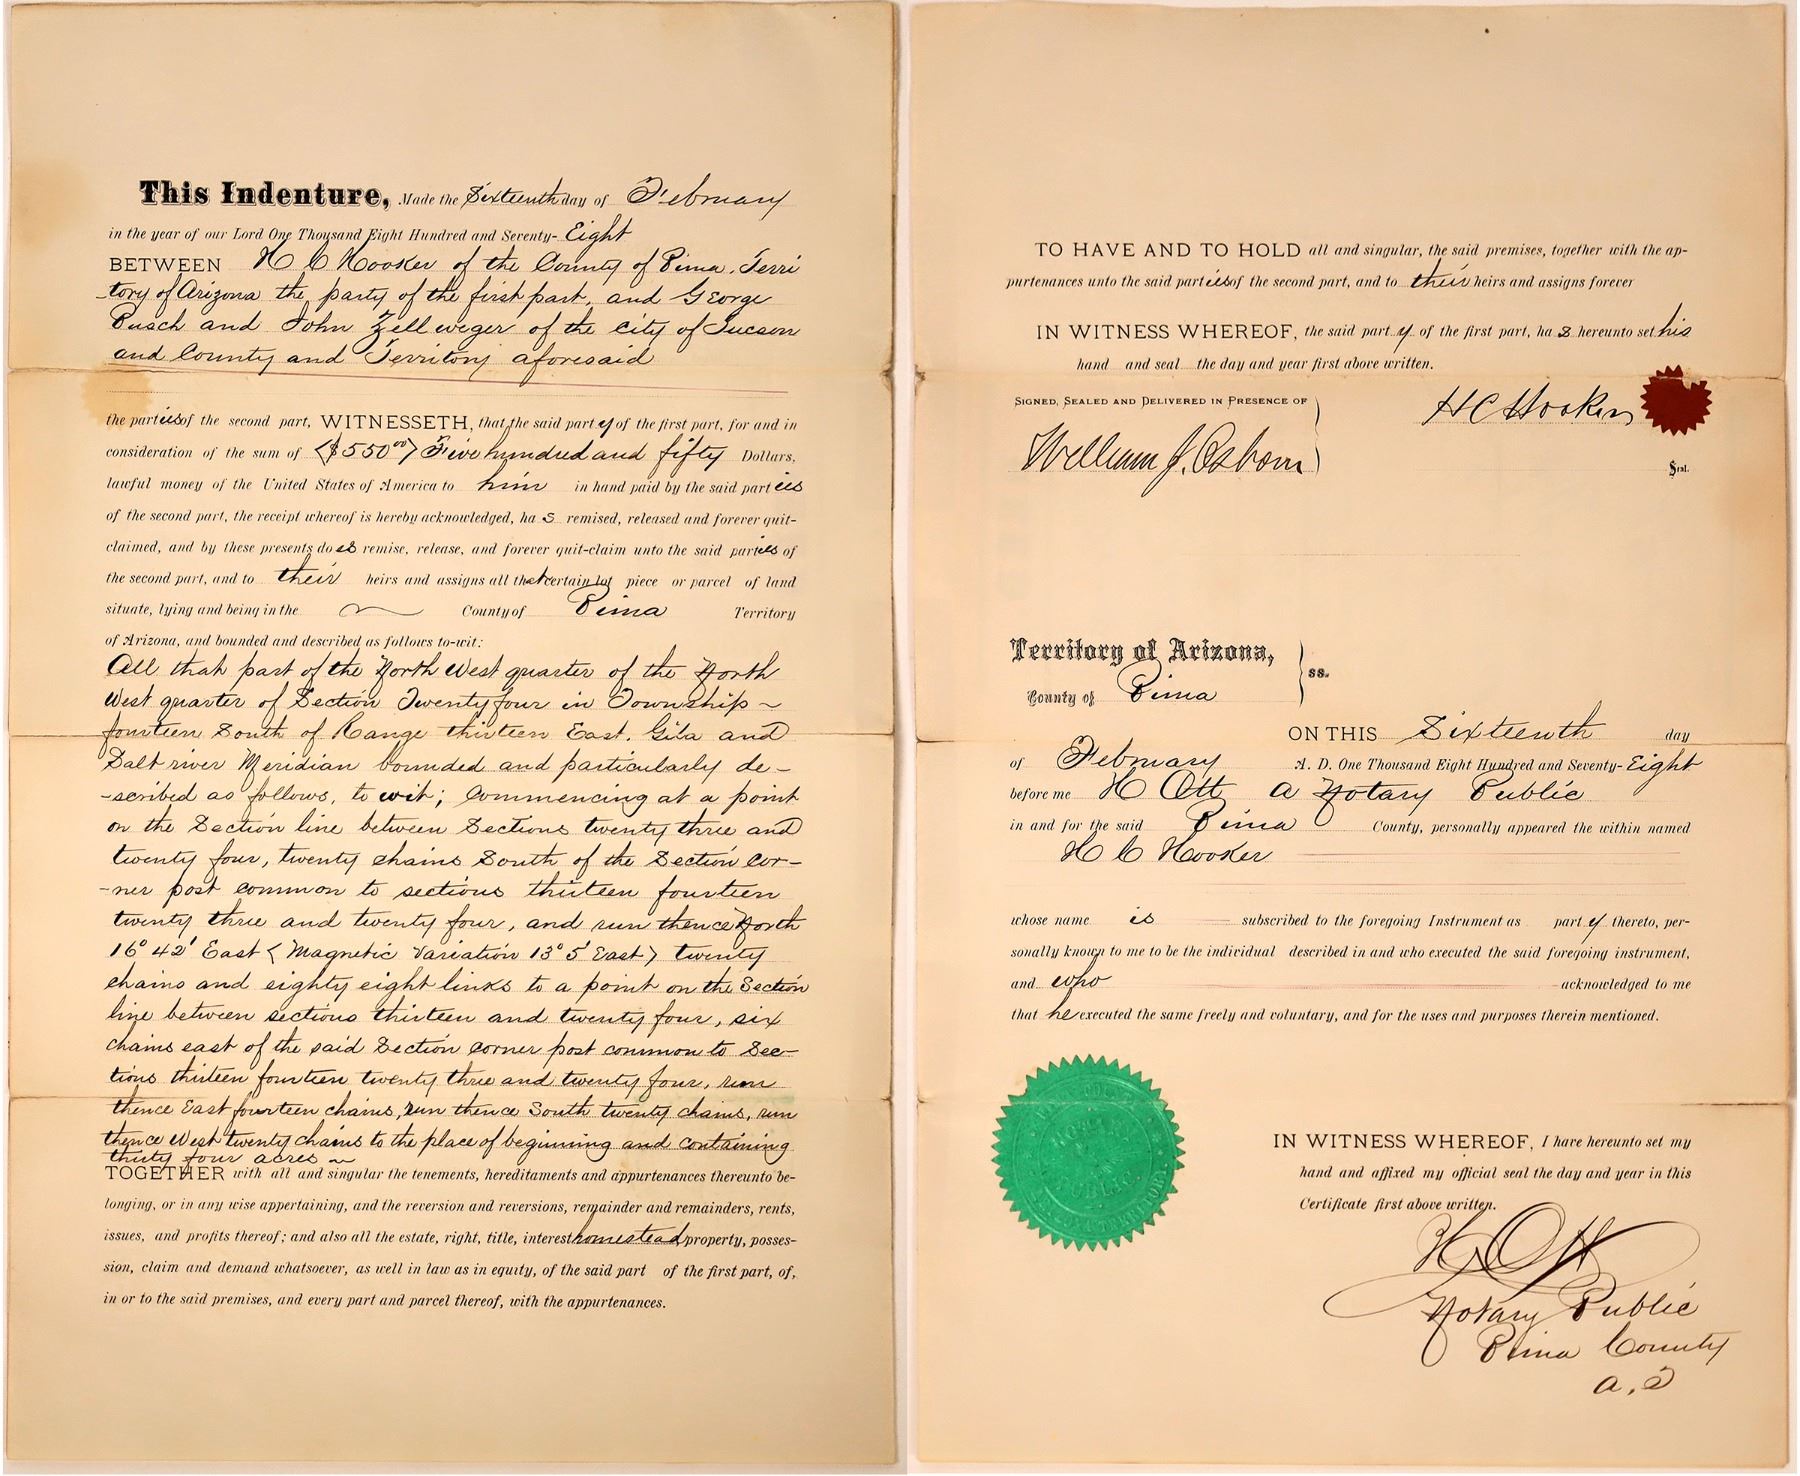 This Indenture, Made the Sixteenth day of February
in the year of our Lord One Thousand Eight Hundred and Seventy-Eight
BETWEEN H C Hooker of the County of Pima, Terri
-tory of Arizona the party of the first part, and George
Pusch and John Zellweger of the city of Tucson
and County and Territory aforesaid
the parties of the second part, WITNESSETH, that the said party of the first part, for and in
consideration of the sum of ($550 00) Five hundred and fifty Dollars,
lawful money of the United States of America to him in hand paid by the said parties
of the second part, the receipt whereof is hereby acknowledged, has remised, released and forever quit-
claimed, and by these presents does remise, release, and forever quit-claim unto the said parties of
the second part, and to their heirs and assigns all that certain lot piece or parcel of land
situate, lying and being in the County of Pima Territory
of Arizona, and bounded and described as follows to-wit:
All that part of the North West quarter of the North
West quarter of Section Twenty four in Township ~
fourteen South of Range thirteen East. Gila and
Salt river Meridian bounded and particularly de-
-scribed as follows, to wit; Commencing at a point
on the Section line between Sections twenty three and
twenty four, twenty chains South of the Section Cor-
-ner post common to sections thirteen fourteen
twenty three and twenty four, and run thence North
16° 42' East (Magnetic Variation 13° 5' East) twenty
chains and eighty eight links to a point on the Section
line between sections thirteen and twenty four, six
chains east of the said Section corner post common to Sec-
tions thirteen fourteen twenty three and twenty four, run
thence East fourteen chains, run thence South twenty chains, run
thence West twenty chains to the place of beginning and containing
thirty four acres ~
TOGETHER with all and singular the tenements, hereditaments and appurtenances thereunto be-
longing, or in any wise appertaining, and the reversion and reversions, remainder and remainders, rents,
issues, and profits thereof; and also all the estate, right, title, interest homestead property, posses-
sion, claim and demand whatsoever, as well in law as in equity, of the said part of the first part, of,
in or to the said premises, and every part and parcel thereof, with the appurtenances.
TO HAVE AND TO HOLD all and singular, the said premises, together with the ap-
purtenances unto the said parties of the second part, and to their heirs and assigns forever
IN WITNESS WHEREOF, the said party of the first part, has hereunto set his
hand and seal the day and year first above written.
SIGNED, SEALED AND DELIVERED IN PRESENCE OF
H C Hooker
William J. Osborn
Seal.
Territory of Arizona,
County of Pima
ss.
ON THIS Sixteenth day
of February A. D. One Thousand Eight Hundred and Seventy-Eight
before me H Ott a Notary Public
in and for the said Pima County, personally appeared the within named
H C Hooker
whose name is subscribed to the foregoing Instrument as party thereto, per-
sonally known to me to be the individual described in and who executed the said foregoing instrument,
and who acknowledged to me
that he executed the same freely and voluntary, and for the uses and purposes therein mentioned.
IN WITNESS WHEREOF, I have hereunto set my
hand and affixed my official seal the day and year in this
Certificate first above written.
H Ott
Notary Public
Pima County